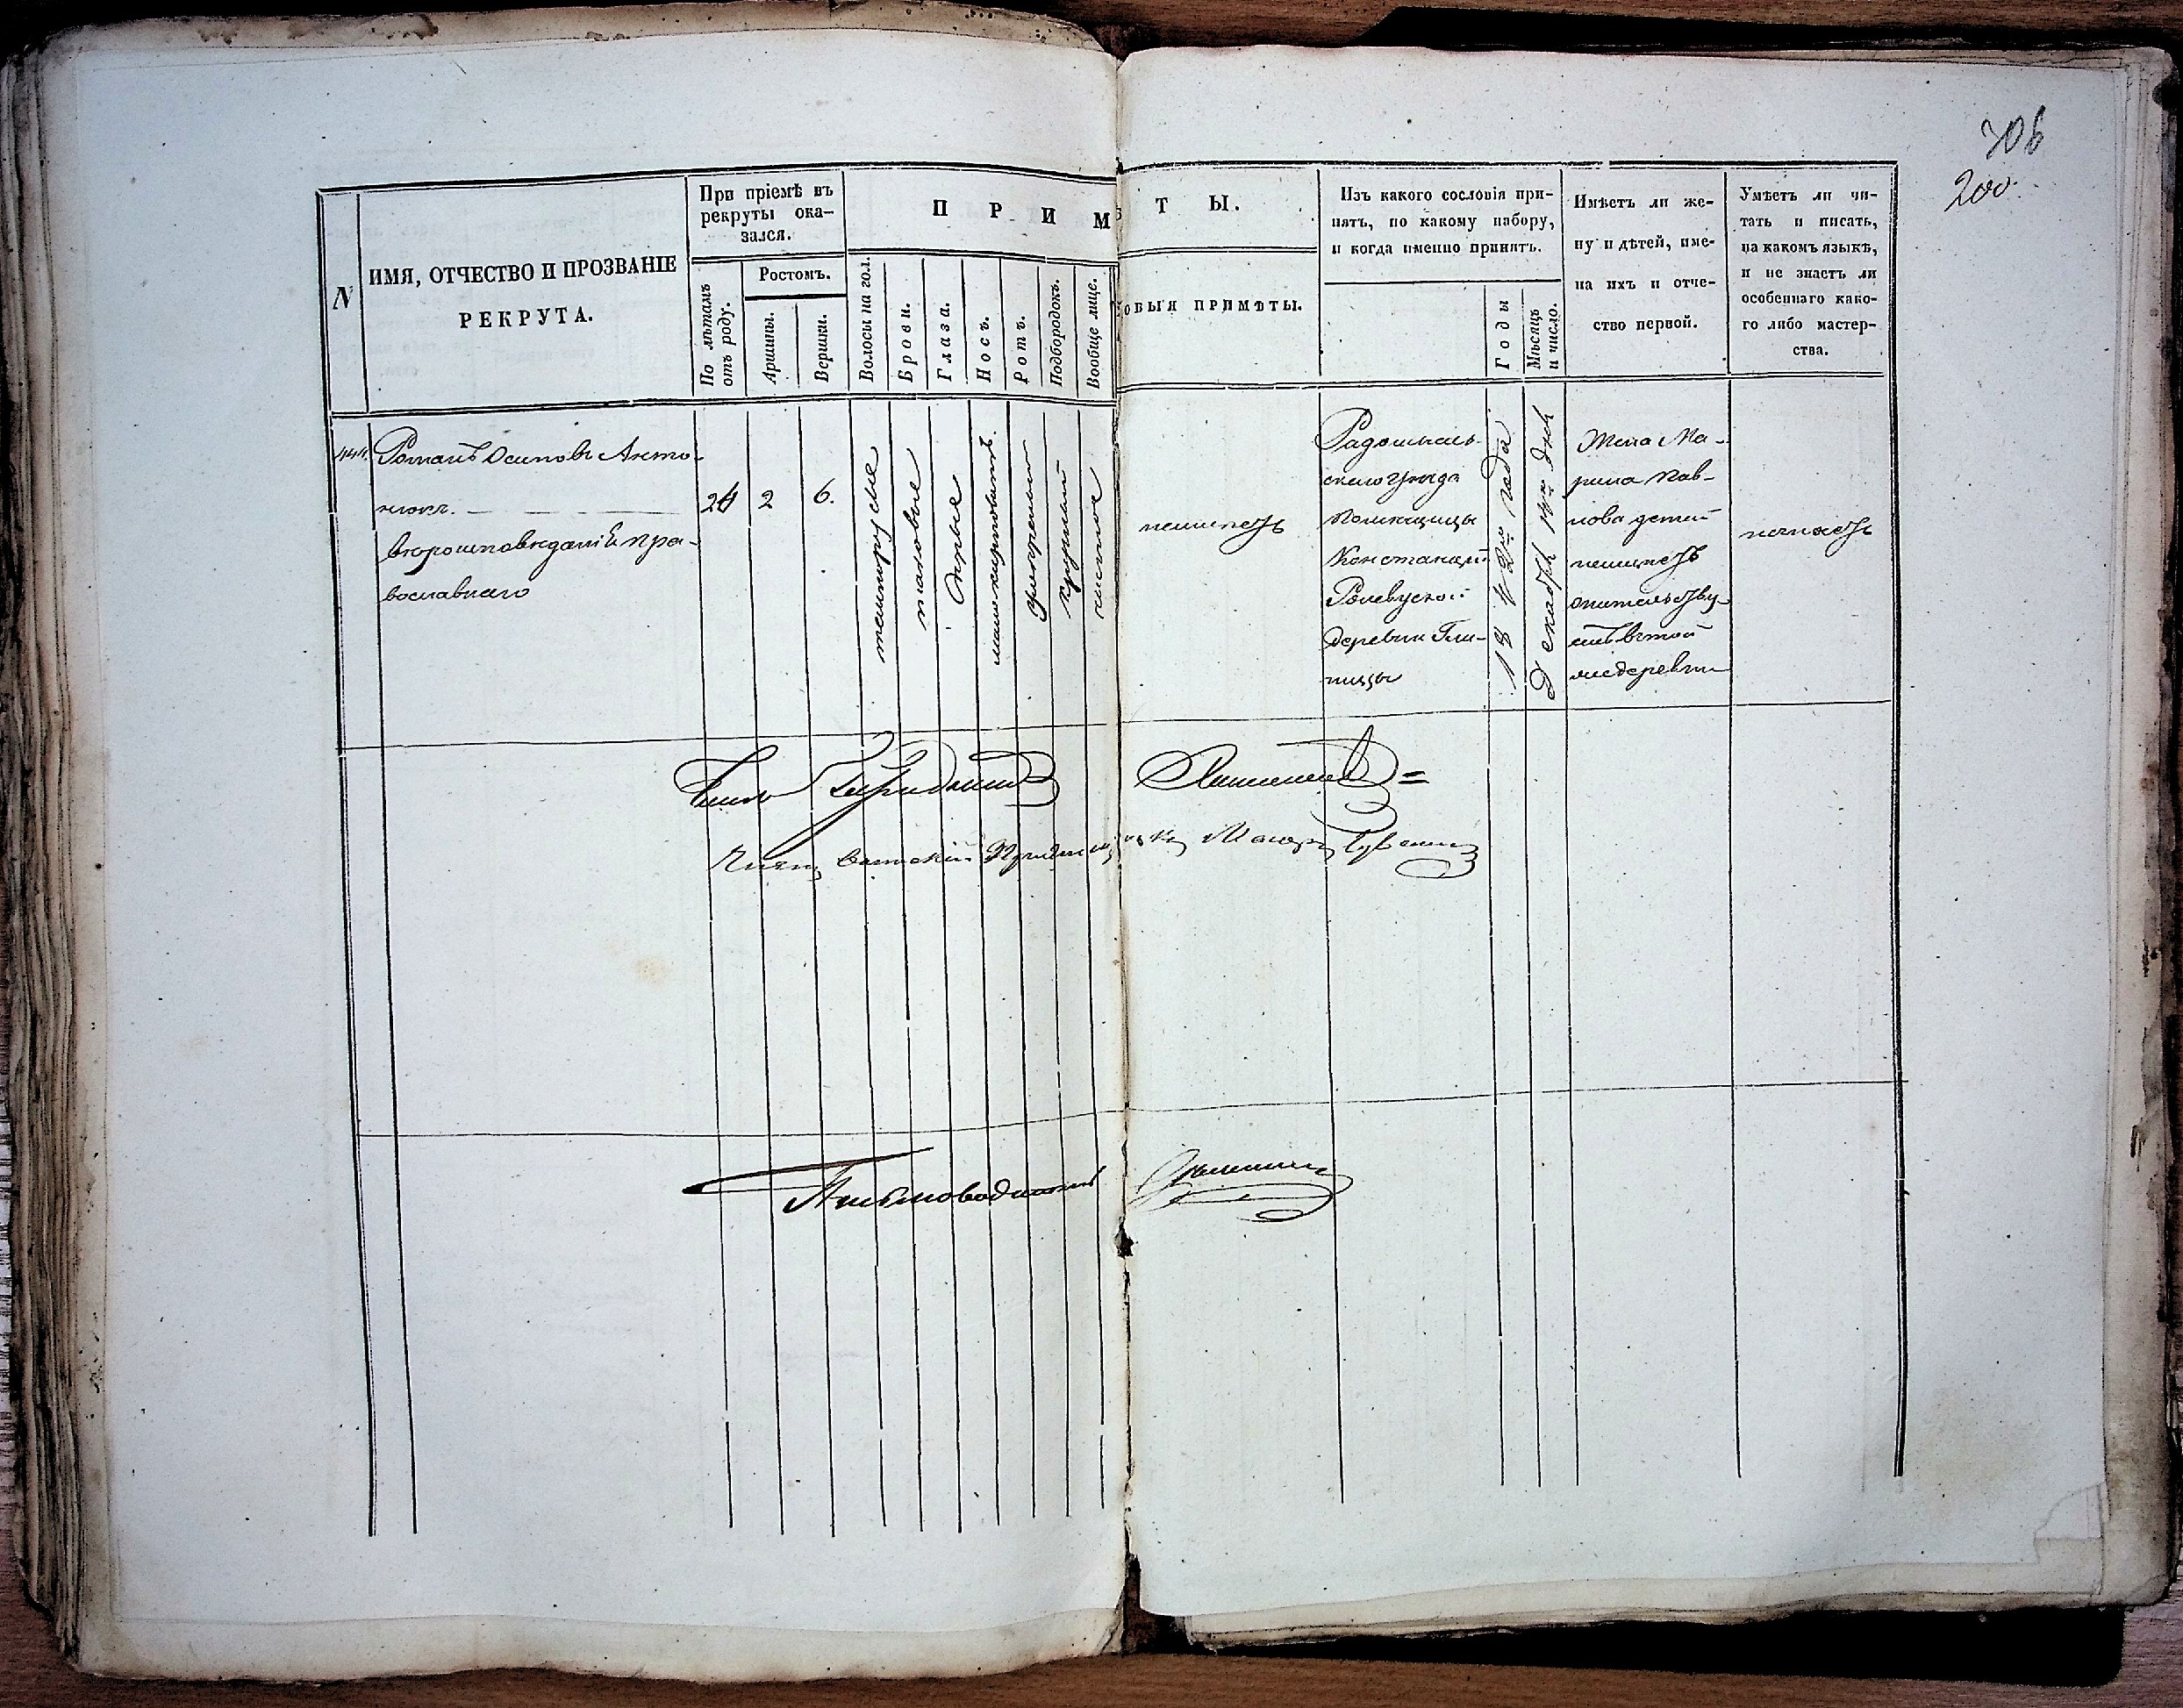 306
200.
N
ИМЯ, ОТЧЕСТВО И ПРОЗВАНІЕ
РЕКРУТА.
При пріемѣ въ
рекруты ока-
зался.
По лѣтамъ
отъ роду.
Ростомъ.
Аршины.
Вершки.
П Р И М
Т Ы.
Волосы на гол.
Брови.
Глаза.
Носъ.
Ротъ.
Подбородокъ.
Вообще лице.
ОВЫЯ ПРИМѢТЫ.
Изъ какого сословія при-
нятъ, по какому набору,
и когда именно принятъ.
Годы
Мѣсяцъ
и число.
Имѣетъ ли же-
ну и дѣтей, име-
на ихъ и отче-
ство первой.
Умѣетъ ли чи-
тать и писать,
на какомъ языкѣ,
и не знаетъ ли
особеннаго како-
го либо мастер-
ства.
444.
Романъ Осиповъ Анто-
нюкъ.
вѣроисповѣданія пра-
вославнаго
24
2
6.
темнорусые
таковые
карые
умѣренный
круглый
чистое
неимѣетъ
Радомысль-
скаго уѣзда
Помѣщицы
Констанціи
деревни Гли-
ницы
1842го года
Декабря
Жена Ма-
рина Пав-
лова детей
неимѣетъ
жительству-
етъ втой
жедеревни
незнаетъ
Членъ
Членъ Воинскій Пріемщикъ Маіоръ
Письмоводитель